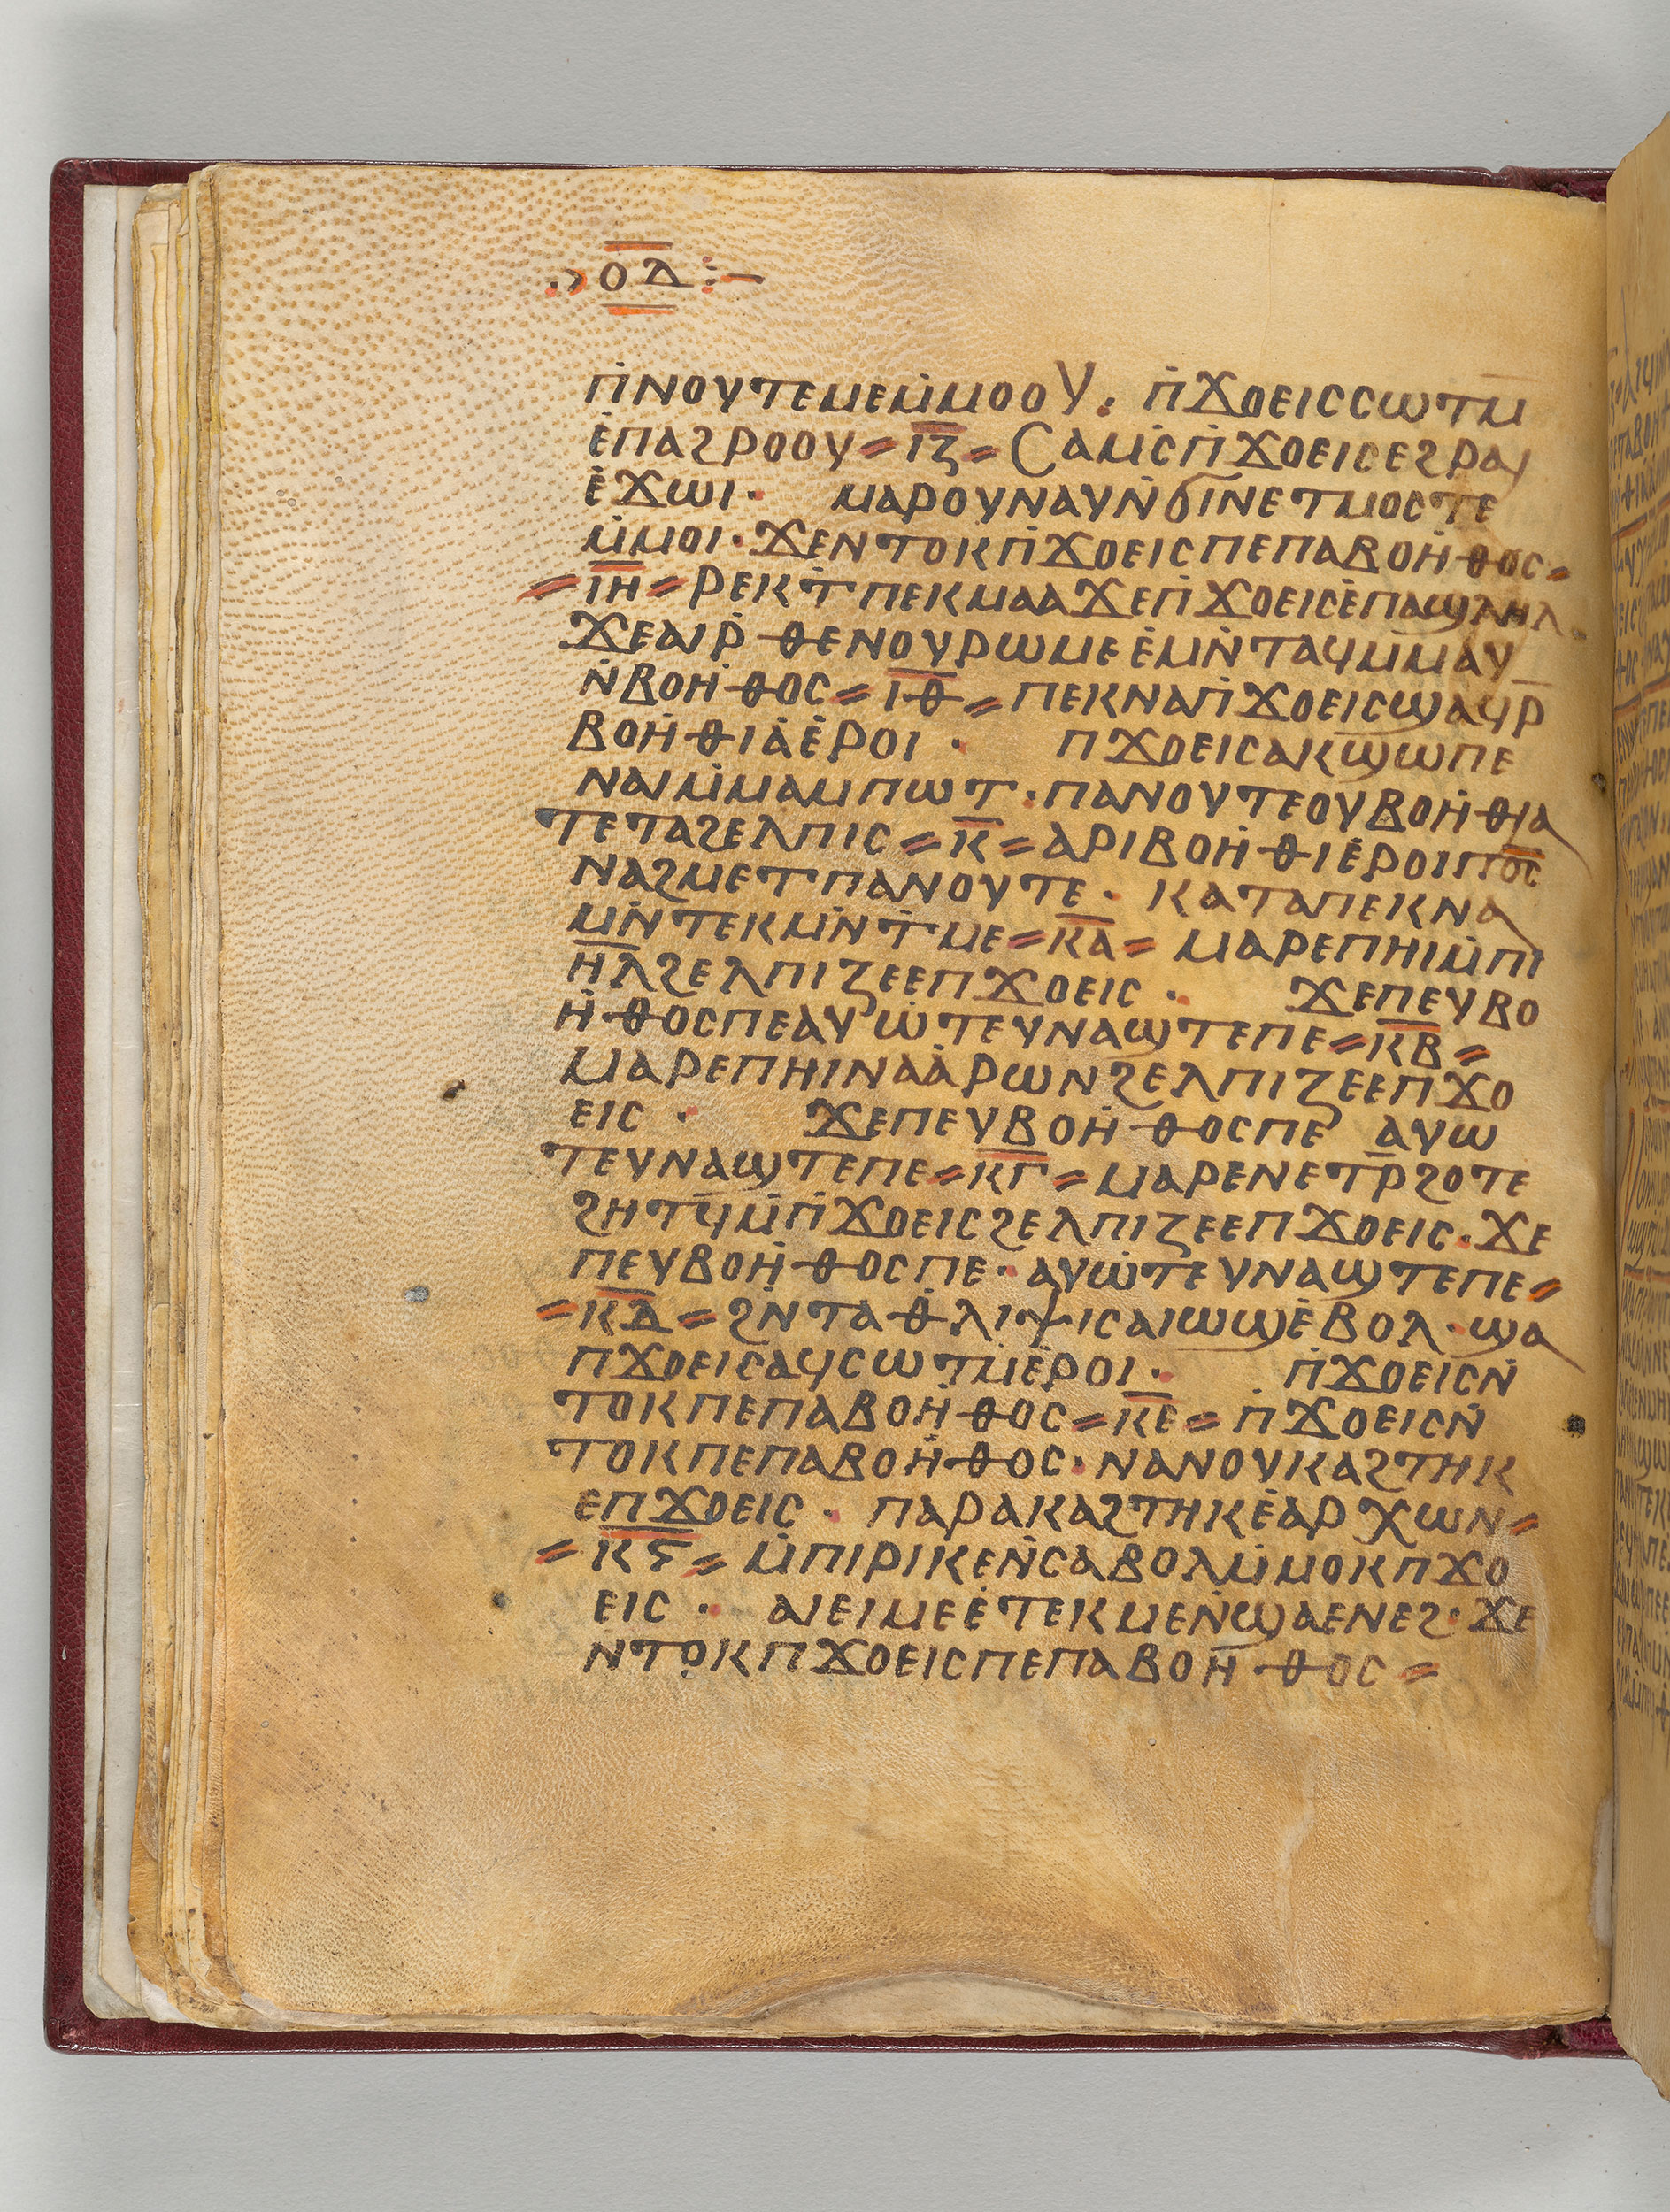 ⲟⲇ
ⲡ̇ⲛⲟⲩⲧⲉⲙⲉⲙ̇ⲙⲟⲟⲩ. ⲡ̇ϫⲟⲉⲓⲥⲥⲱⲧⲙ
ⲉ̇ⲡⲁϩⲣⲟⲟⲩ = ⲓ̅ⲍ̅ = Ⲥⲁⲙ̇ⲥⲡ̇ϫⲟⲉⲓⲥⲉϩⲣⲁⲓ
ⲉ̇ϫⲱⲓ· ⲙⲁⲣⲟⲩⲛⲁⲩⲛ̇ϭⲓⲛⲉⲧⲙⲟⲥⲧⲉ
ⲙ̇ⲙⲟⲓ· ϫⲉⲛⲧⲟⲕⲡ̇ϫⲟⲉⲓⲥⲡⲉⲡⲁⲃⲟⲏ̇ⲑⲟⲥ =
= ⲓ̅ⲏ̅ = ⲣⲉⲕⲧ̇ⲡⲉⲕⲙⲁⲁϫⲉⲡ̇ϫⲟⲉⲓⲥⲉ̇ⲡⲁϣⲗⲏⲗ·
ϫⲉⲁⲓⲣ̇ⲑⲉⲛⲟⲩⲣⲱⲙⲉⲉ̇ⲙⲛ̇ⲧⲁϥⲙ̇ⲙⲁⲩ
ⲛ̇ⲃⲟⲏ̇ⲑⲟⲥ = ⲓ̅ⲑ̅ = ⲡⲉⲕⲛⲁⲡ̇ϫⲟⲉⲓⲥϣⲁϥⲣ̅
ⲃⲟⲏ̇ⲑⲓⲁ̇ⲉ̇ⲣⲟⲓ· ⲡϫⲟⲉⲓⲥⲁⲕϣⲱⲡⲉ
ⲛⲁⲓⲙ̇ⲙⲁⲙⲡⲱⲧ· ⲡⲁⲛⲟⲩⲧⲉⲟⲩⲃⲟⲏ̇ⲑⲓⲁ
ⲧⲉⲧⲁϩⲉⲗⲡⲓⲥ = ⲕ̅ = ⲁⲣⲓⲃⲟⲏ̇ⲑⲓⲉ̇ⲣⲟⲓⲡⲟ̅ⲥ̅
ⲛⲁϩⲙⲉⲧⲡⲁⲛⲟⲩⲧⲉ· ⲕⲁⲧⲁⲡⲉⲕⲛⲁ
ⲙⲛ̇ⲧⲉⲕⲙⲛ̇ⲧ̇ⲙⲉ = ⲕ̅ⲁ̅ = ⲙⲁⲣⲉⲡⲏⲓⲙ̇ⲡⲓ
ⲏ̅ⲗ̅ϩⲉⲗⲡⲓⲍⲉⲉⲡϫⲟⲉⲓⲥ· ϫⲉⲡⲉⲩⲃⲟ
ⲏ̇ⲑⲟⲥⲡⲉⲁⲩⲱ̇ⲧⲉⲩⲛⲁϣⲧⲉⲡⲉ = ⲕ̅ⲃ̅ =
ⲙⲁⲣⲉⲡⲏⲓⲛⲁⲁ̇ⲣⲱⲛϩⲉⲗⲡⲓⲍⲉⲉⲡϫⲟ
ⲉⲓⲥ· ϫⲉⲡⲉⲩⲃⲟⲏ̇ⲑⲟⲥⲡⲉ ⲁⲩⲱ
ⲧⲉⲩⲛⲁϣⲧⲉⲡⲉ = ⲕ̅ⲅ̅ = ⲙⲁⲣⲉⲛⲉⲧⲣ̅ϩⲟⲧⲉ
ϩⲏⲧϥ̅ⲙ̇ⲡ̇ϫⲟⲉⲓⲥϩⲉⲗⲡⲓⲍⲉⲉⲡϫⲟⲉⲓⲥ· ϫⲉ
ⲡⲉⲩⲃⲟⲏ̇ⲑⲟⲥⲡⲉ· ⲁⲩⲱ̇ⲧⲉⲩⲛⲁϣⲧⲉⲡⲉ =
= ⲕ̅ⲇ̅ = ϩⲛ̇ⲧⲁⲑⲗⲓⲯⲓⲥⲁⲓⲱϣⲉ̇ⲃⲟⲗ· ϣⲁ
ⲡϫⲟⲉⲓⲥⲁϥⲥⲱⲧⲙ̇ⲉ̇ⲣⲟⲓ· ⲡ̇ϫⲟⲉⲓⲥⲛ̇
ⲧⲟⲕⲡⲉⲡⲁⲃⲟⲏ̇ⲑⲟⲥ = ⲕ̅ⲉ̅ = ⲡ̇ϫⲟⲉⲓⲥⲛ̇
ⲧⲟⲕⲡⲉⲡⲁⲃⲟⲏ̇ⲑⲟⲥ· ⲛⲁⲛⲟⲩⲕⲁϩⲧⲏⲕ
ⲉⲡϫⲟⲉⲓⲥ· ⲡⲁⲣⲁⲕⲁϩⲧⲏⲕⲉ̇ⲁⲣⲭⲱⲛ =
= ⲕ̅ⲋ̅ = ⲙ̇ⲡⲓⲣⲓⲕⲉⲛ̇ⲥⲁⲃⲟⲗⲙ̇ⲙⲟⲕⲡϫⲟ
ⲉⲓⲥ· ⲁⲓⲉⲓⲙⲉⲉ̇ⲧⲉⲕⲙⲉⲛ̇ϣⲁⲉⲛⲉϩ· ϫⲉ
ⲛⲧⲟⲕⲡϫⲟⲉⲓⲥⲡⲉⲡⲁⲃⲟⲏ̇ⲑⲟⲥ =